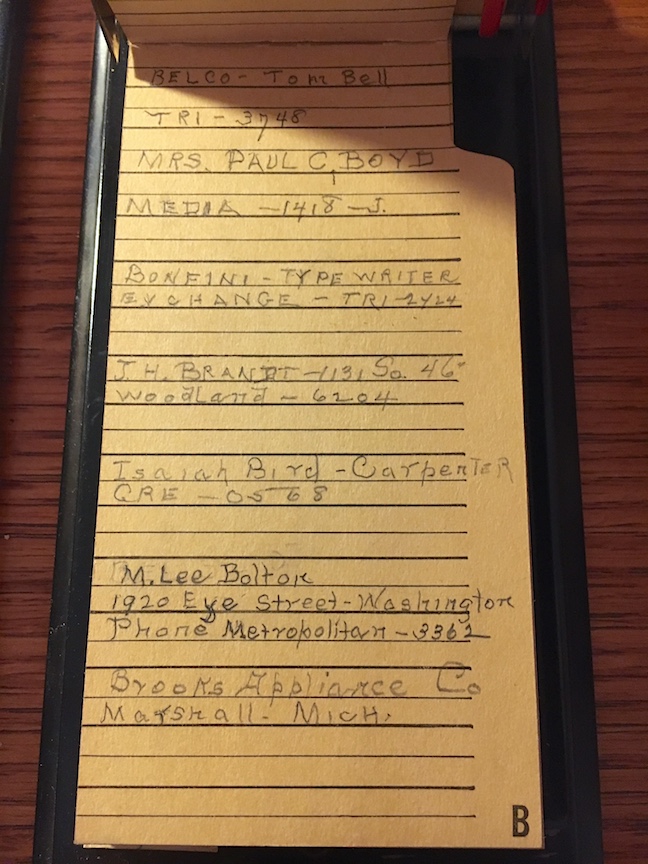 BELCO- Tom Bell
TRI - 3748
MRS. PAUL C, BOYD
MEDIA -1418-J.
BONFINI - TYPE WRITER
EXCHANGE - TRI-2424
J. H. BRANDT -1131 So. 46"
WoodLand - 6204
Isaiah Bird - CarpenTER
GRE - 0568
M. Lee Bolton
1920 Eye Street-Washington
Phone Metropolitan - 3362
Brooks Appliance Co
Marshall- MicH.
B